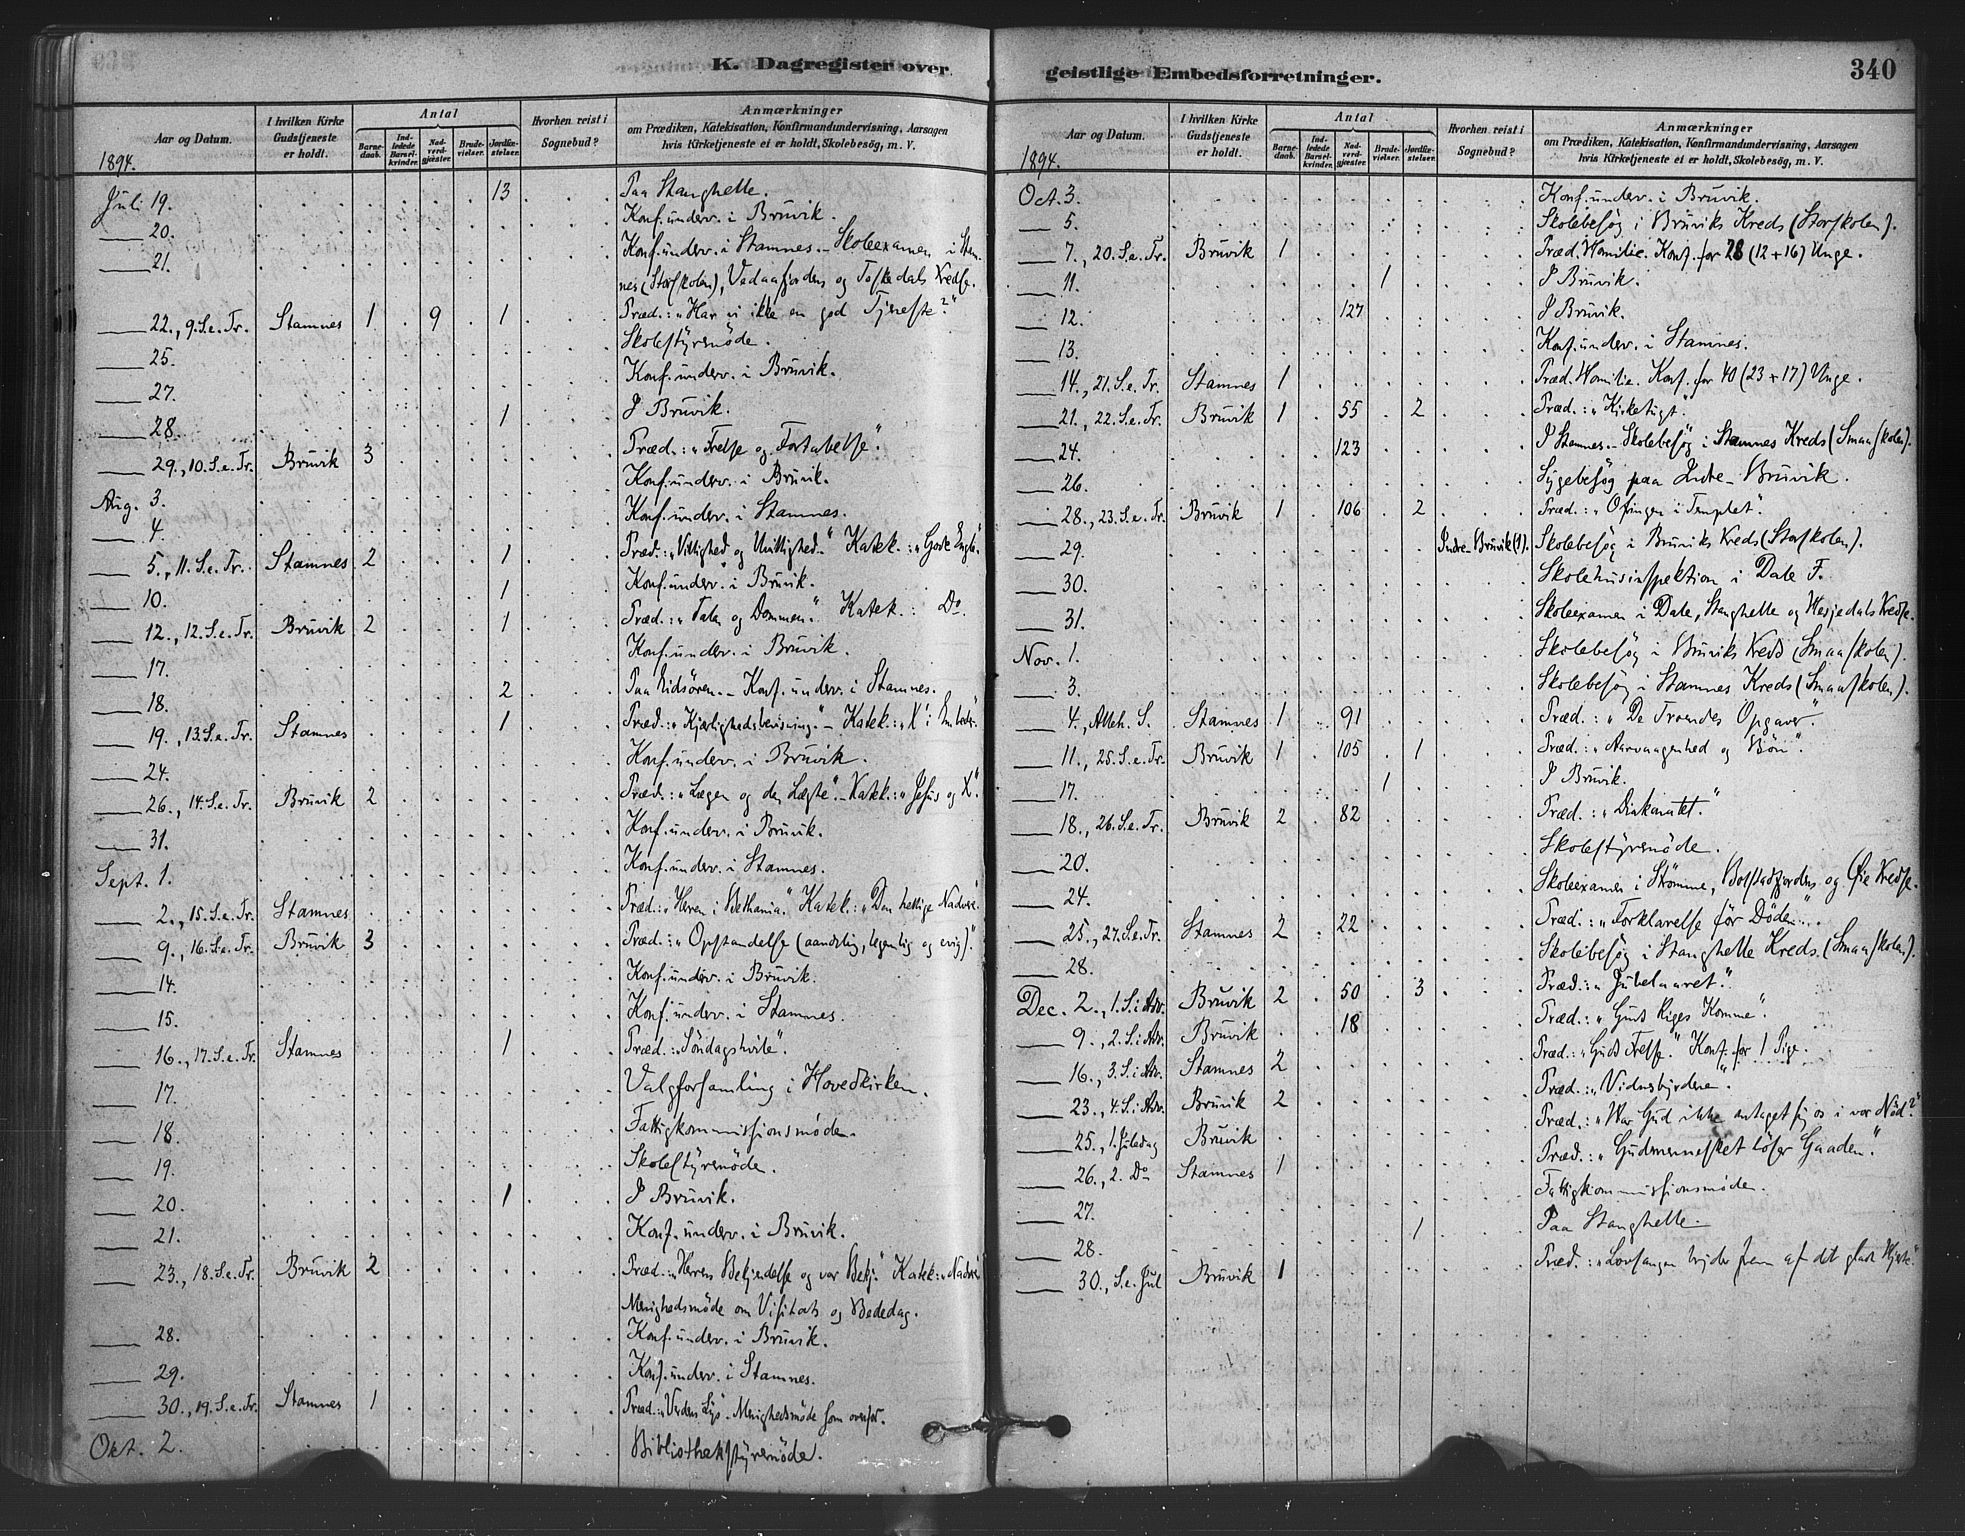 K. Dagregister over
Aar og Datum. I hvilken Kirke Gudstjeneste er holdt. Antal Barnedaab. Indledede Barselkvinder. Nadverdgjæster. Brudevielser. Jordfæstelser. Hvorhen reist i Sognebud? Anmærkninger om Prædiken, Katekisation, Konfirmandundervisning, Aarsagen hvis Kirketjeneste ei er holdt, Skolebesøg, m. V.
1894.
Juli 19. 13 Paa Stanghelle.
20. Konf.underv. i Bruvik.
21. Konf.underv. i Stamnes. – Skoleexamen i Stam-
nes (Storskolen), Vedaafjordens og Toskedals Kredse.
22., 9. S. e. Tr. Stamnes 1 9 1 Præd.: „Har vi ikke en god Tjeneste?"
25. Skolestyrsmøde.
27. Konf.underv. i Bruvik.
28. 1 I Bruvik.
29., 10. S. e. Tr. Bruvik 3 Præd.: „Frelse og Fortabelse".
Aug. 3. Konf.underv. i Bruvik.
4. Konf.underv. i Stamnes.
5., 11. S. e. Tr. Stamnes 2 1 Præd.: „Villighed og Uvillighed." Katek.: „Gode Engle"
10. 1 Konf.underv. i Bruvik.
12., 12. S. e. Tr. Bruvik 2 1 Præd.: „Talen og Dommen." Katek.: Do.
17. Konf.underv. i Bruvik.
18. 2 Paa Eidsören. – Konf.underv. i Stamnes.
19., 13. S. e. Tr. Stamnes 1 Præd.: „Kjærlighedsbevisning". – Katek.: „X i Embede".
24. Konf.underv. i Bruvik.
26., 14. S. e. Tr. Bruvik 2 Præd.: „Lægen og den Lægte". Katek.: „Jesus og X".
31. Konf.underv. i Bruvik.
Sept. 1. Konf.underv. i Stamnes.
2., 15. S. e. Tr. Stamnes Præd.: „Herren i Bethania." Katek.: „Den hellige Nadvere".
9., 16. S. e. Tr. Bruvik 3 Præd.: „Opstandelse (aandelig, legemlig og evig)."
14. Konf.underv. i Bruvik.
15. Konf.underv. i Stamnes.
16., 17. S. e. Tr. Stamnes 1 Præd.: „Søndagshvile".
17. Valgforsamling i Hovedkirken.
18. Fattigkommissionsmøde.
19. Skolestyrsmøde.
20. 1 I Bruvik.
21. Konf.underv. i Bruvik.
23., 18. S. e. Tr. Bruvik 2 Præd.: „Herrens Bekjendelse og vor Bekj." Katek.: „Nadvere"
Menighedsmøde om Visitats og Bededag.
28. Konf.underv. i Bruvik.
29. Konf.underv. i Stamnes.
30., 19. S. e. Tr. Stamnes 1 Præd.: „Verdens Lys. Menighedsmøde som ovenfor.
Okt. 2. Bibliothekstyrsmøde.
geistlige Embedsforretninger.
340
Aar og Datum. I hvilken Kirke Gudstjeneste er holdt. Antal Barnedaab. Indledede Barselkvinder. Nadverdgjæster. Brudevielser. Jordfæstelser. Hvorhen reist i Sognebud? Anmærkninger om Prædiken, Katekisation, Konfirmandundervisning, Aarsagen hvis Kirketjeneste ei er holdt, Skolebesøg, m. V.
1894.
Oct. 3. Konf.underv. i Bruvik.
5. Skolebesøg i Bruviks Kreds (Storskolen).
7., 20. S. e. Tr. Bruvik 1 Præd. Homilie. Konf. for 28 (12 + 16) Unge.
11. 1 I Bruvik.
12. 127 I Bruvik.
13. Konf.underv. i Stamnes.
14., 21. S. e. Tr. Stamnes 1 Præd. Homilie. Konf. for 40 (23 + 17) Unge.
21., 22. S. e. Tr. Bruvik 1 55 2 Præd.: „Kirketugt".
24. 123 I Stamnes. – Skolebesøg i Stamnes Kreds (Smaaskolen).
26. Sygebesøg paa Indre-Bruvik.
28., 23. S. e. Tr. Bruvik 1 106 2 Præd.: „Ofringen i Templet".
29. Indre-Bruvik (1). Skolebesøg i Bruviks Kreds (Storskolen).
30. Skolehusinspektion i Dale F.
31. Skoleexamen i Dale, Stanghelle og Hesjedals Kredse.
Nov. 1. Skolebesøg i Bruviks Kreds (Smaaskolen).
3. Skolebesøg i Stamnes Kreds (Smaaskolen).
4., Alleh. S. Stamnes 1 91 Præd.: „De Troendes Opgaver".
11., 25. S. e. Tr. Bruvik 1 105 1 Præd.: „Aarvaagenhed og Bøn".
17. 1 I Bruvik.
18., 26. S. e. Tr. Bruvik 2 82 Præd.: „Diakonatet".
20. Skolestyrsmøde.
24. Skoleexamen i Stømme, Bolstadfjordens og Øie Kredse.
25., 27. S. e. Tr. Stamnes 2 22 Præd.: „Forklarelse før Døden".
28. Skolebesøg i Stanghelle Kreds. (Smaaskolen).
Dec. 2., 1. S. i Adv. Bruvik 2 50 3 Præd.: „Jubelaaret".
9., 2. S. i Adv. Bruvik 18 Præd.: „Guds Riges Komme".
16., 3. S. i Adv. Stamnes 2 Præd.: „Guds Frelse." Konf. for 1 Pige.
23., 4. S. i Adv. Bruvik 2 Præd.: „Vidnesbyrdene".
25., 1. Juledag Bruvik Præd.: „Har Gud ikke antaget sig os i vor Nød?"
26., 2. Do Stamnes 1 Præd.: „Gudmennesket løser Gaaden."
27. Fattigkommissionsmøde.
28. 1 Paa Stanghelle.
30., S. e. Jul Bruvik 1 Præd.: „Lovsangen bryder frem af det glade Hjerte".